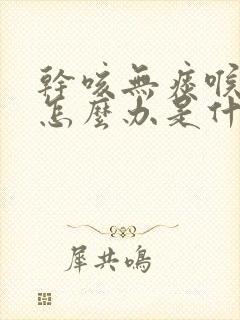 幹咳無痰喉
怎麼办是什
犀共鳴